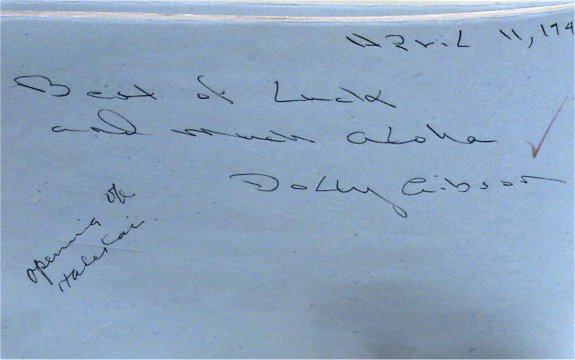 April 11, 194
Best of Luck
and much aloha
Dolly Gibson
opening of
Halekai